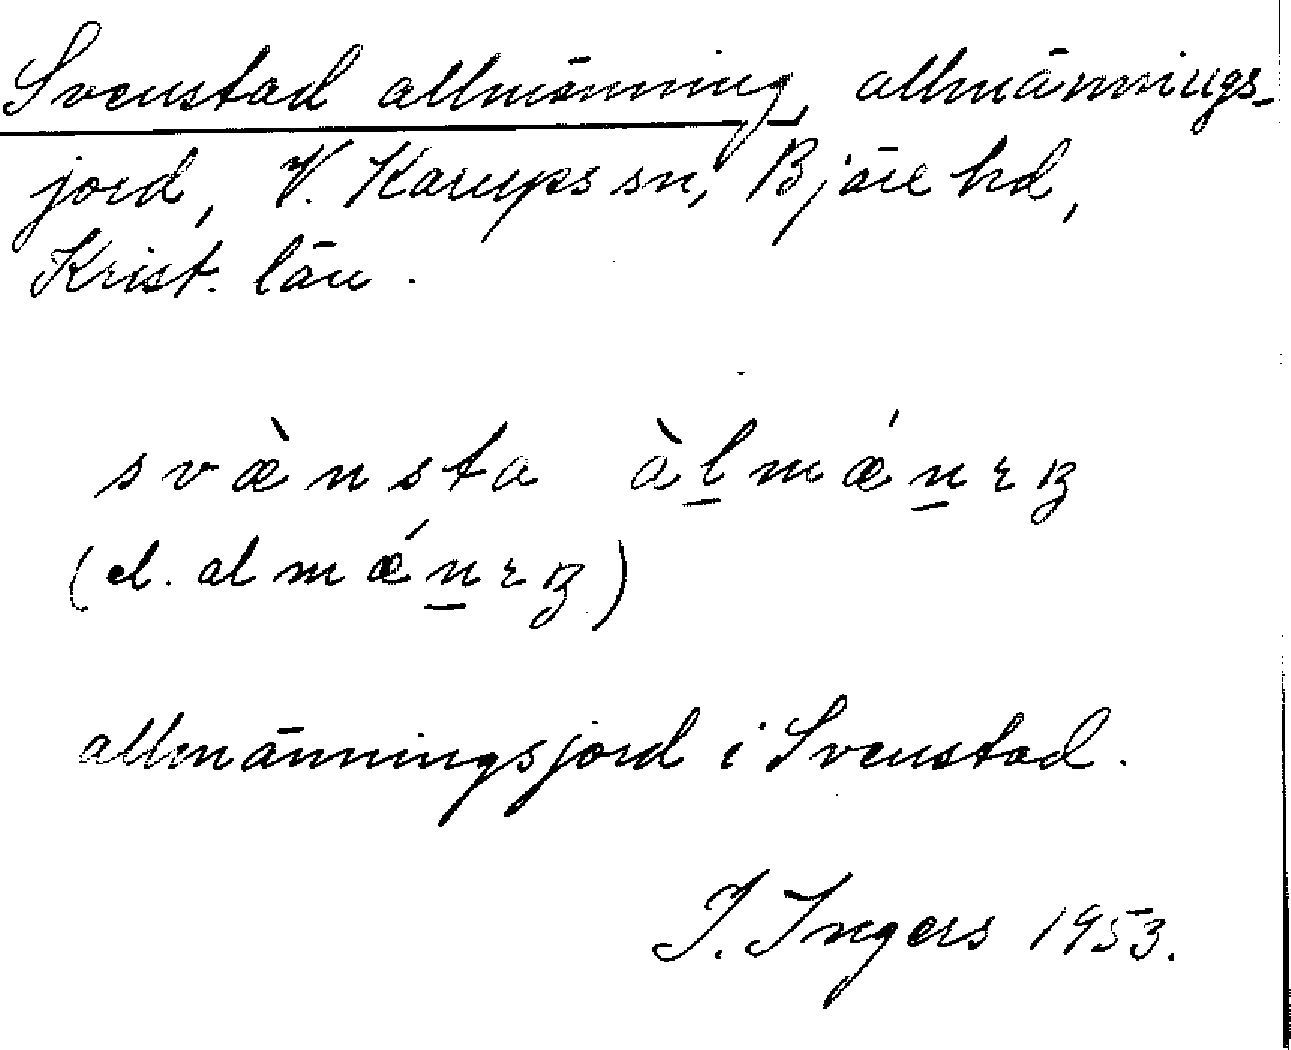 Svenstad allmänning, allmännings-
jord, V. Karups sn, Bjäre hd,
Krist. län.
svæ̀nsta àl̲mǽn̲ɪŋ
(el. almǽn̲ɪŋ)
allmänningsjord i Svenstad.
I. Ingers 1953.